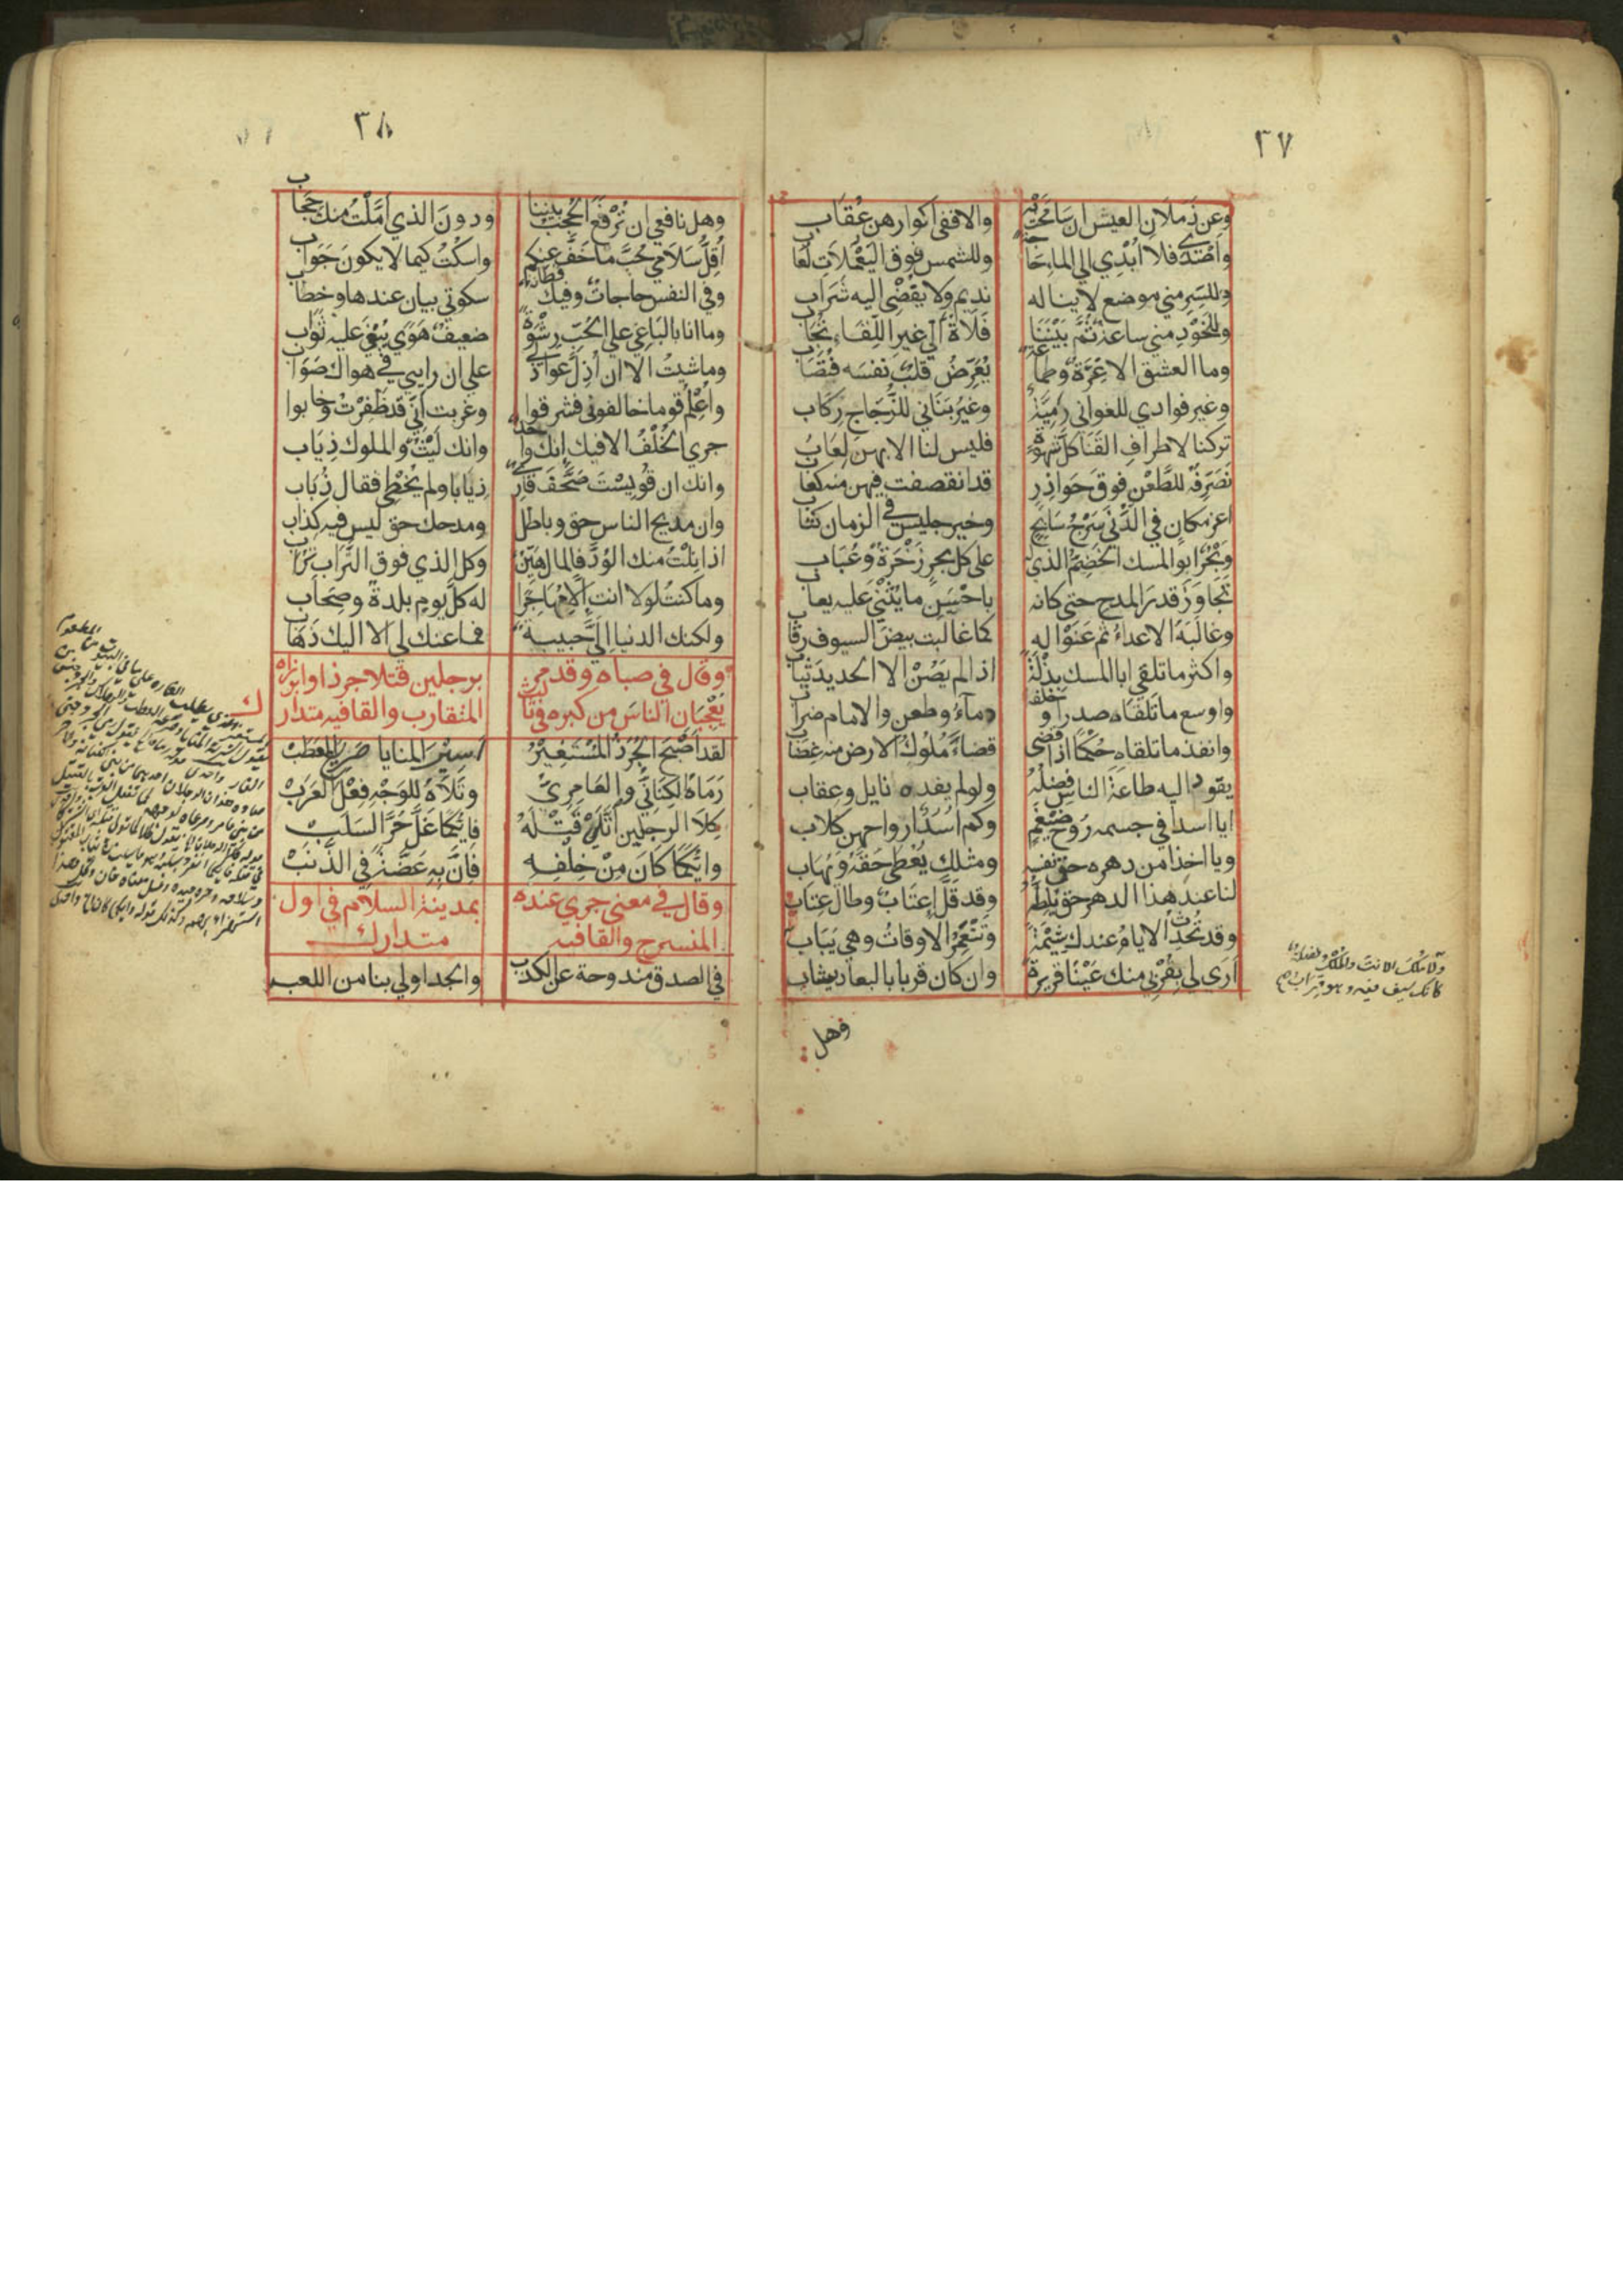 ٣٧
وعن ذملان العيس ان سامحت به والا ففي اكوارهن عُقاب
واصدى فلا ابدي الى الماء حاجة وللشمس فوق اليَعْمَلات لعاب
وللسر مني موضع لا يناله نديم ولا يفضى اليه شراب
وللخود مني ساعة ثم بيننا فلاة الى غير اللقاء تجاب
وما العشق الا غرة وطماعة يعرّض قلب نفسه فيصاب
وغير فوادي للغواني رميّة وغير بناني للزجاج ركاب
تركنا لاطراف القنا كل شهوة فليس لنا الا بهن لعاب
نصرفه للطعن فوق حواذر قد انقصفت فيهن منه كعاب
اعز مكان في الدنى سرج سابح وخير جليس في الزمان كتاب
وبحر ابو المسك الخضم الذي له على كل بحر زخرة وعُباب
تجاوز قدر المدح حتى كانه باحسن ما يثنى عليه يعاب
وغالبه الاعداء ثم عنوا له كما غالبت بيض السيوف رقاب
واكثر ما تلقى ابا المسك بذلة اذا لم يصن الا الحديد ثياب
واوسع ما تلقاه صدرا وخلفه دماء وطعن والامام ضراب
وانفذ ما تلقاه حكما اذا قضى قضاء ملوك الارض منه غضاب
يقود اليه طاعة الناس فضله ولو لم يقده نايل وعقاب
ايا اسدا في جسمه روح ضيغم وكم اسد ارواحهن كلاب
ويا اخذا من دهره حق نفسه ومثلك يعطى حقه ويهاب
لنا عند هذا الدهر حق يلطّه وقد قل اعتاب وطال عتاب
وقد تحدث الايام عندك شيمة وتنعمر الاوقات وهي يباب
ارى لي بقربي منك عينا قريرة وان كان قربا بالبعاد يشاب
ولا ملك الا انت والملك فضلة
كانك سيف فيه وهو قراب
وهل
٣٨
وهل نافعي ان ترفع الحجب بيننا ودون الذي املت منك حجاب
اقل سلامي حب ما خف عنكم واسكت كيما لا يكون جواب
وفي النفس حاجات وفيك فطانة سكوتي بيان عندها وخطاب
وما انا بالباغي على الحب رشوة ضعيف هوى يبغى عليه ثواب
وما شيت الا ان اذل عواذلي على ان رايي في هواك صواب
واعلم قوما خالفوني فشرقوا وغربت اني قد ظفرت وخابوا
جرى الخلف الا فيك انك واحد وانك ليث والملوك ذياب
وانك ان قويست صحف قاري ذيابا ولم يخطي فقال ذباب
وان مديح الناس حق وباطل ومدحك حق ليس فيه كذاب
اذا نلت منك الود فالمال هين وكل الذي فوق التراب تراب
وما كنت لولا انت الا مهاجرا له كل يوم بلدة وصحاب
ولكنك الدنيا الي حبيبة فما عنك لي الا اليك ذهاب
وقال في صباه وقد مر برجلين قتلا جرذا وابرزاه
يعجبان الناس من كبره في ثالث المتقارب والقافيه متدارك
لقد اصبح الجرذ المستغير اسير المنايا صريع العطب
رماه الكناني والعامري وتلاه للوجه فعل العرب
كلا الرجلين اتلى قتله فايكما غل حر السلب
وايكما كان من خلفه فان به عضة في الذنب
وقال في معنى جرى عنده بمدينة السلام في اول
المنسرح والقافيه متدارك
في الصدق مندوحة عن الكذب والجد اولى بنا من اللعب